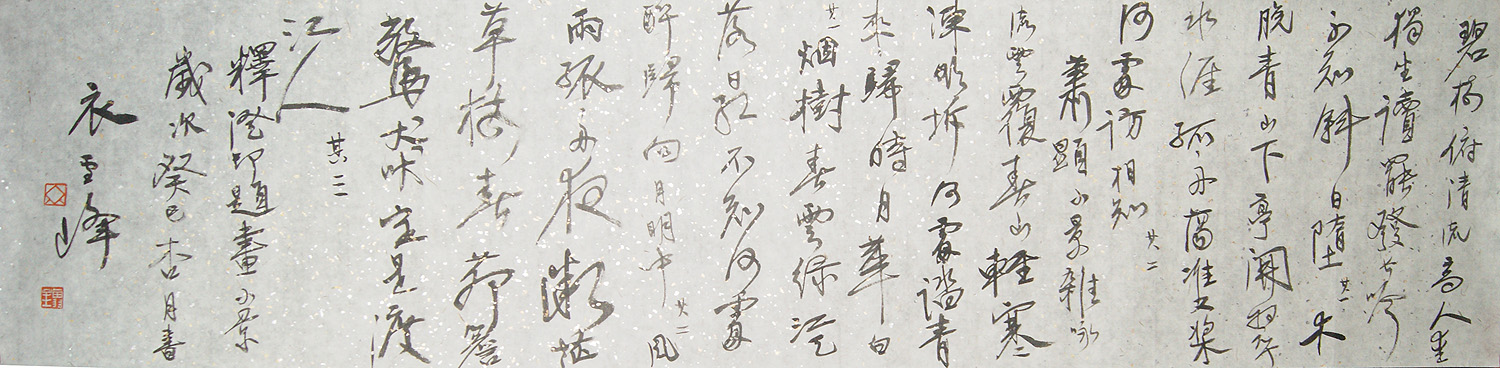 碧樹俯清流高人愛
獨坐讀罷發苦吟
不知斜日墮 其一 木
脫青山下亭開
水涯孤舟蘭槳
何處訪相知 其二
蕭顯小景雜詠
流雲覆春山輕寒
凍初坼何處踏青
來歸時月華白
其一 烟樹春雲綠江
落日紅不知何處
醉歸向月明中 其二 風
雨孤舟夜微茫
草樹春茆簷
驚犬吠定是渡
江人 其三
釋澄印題畫小景
歲次癸巳杏月書
衣雪峰